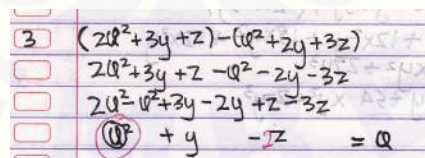 3 (2Q²+3y+z)-(Q²+2y+3z)
2Q²+3y+z-Q²-2y-3z
2Q²-Q²+3y-2y+z-3z
Q² + y -2z = Q